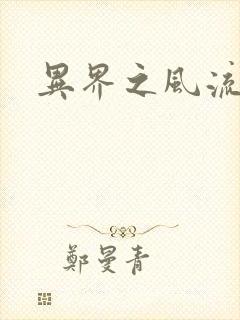 異界之風流
鄭曼青